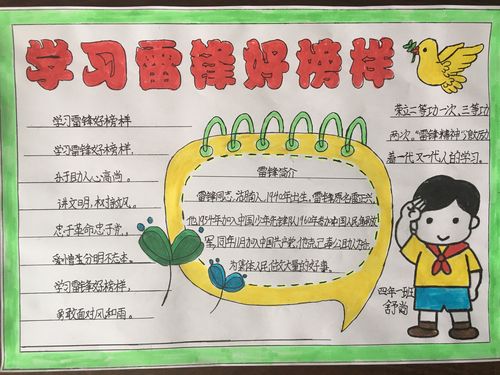 学习雷锋好榜样
学习雷锋好榜样
学习雷锋好榜样，
助人心高尚。
讲文明，树新风。
忠于革命忠于党，
爱憎分明不忘本。
学习雷锋好榜样，
勇敢面对风和雨。
雷锋简介
雷锋同志，湖南人，1940年出生，雷锋原名雷正兴，
他1954年加入中国少年先锋队1960年参加中国人民解放
军，同年11月加入中国共产党
为集体人民做大量的好事。
荣立二等功一次、三等功
两次。“雷锋精神”鼓励
着一代又一代人们的学习。
四年一班
舒尚